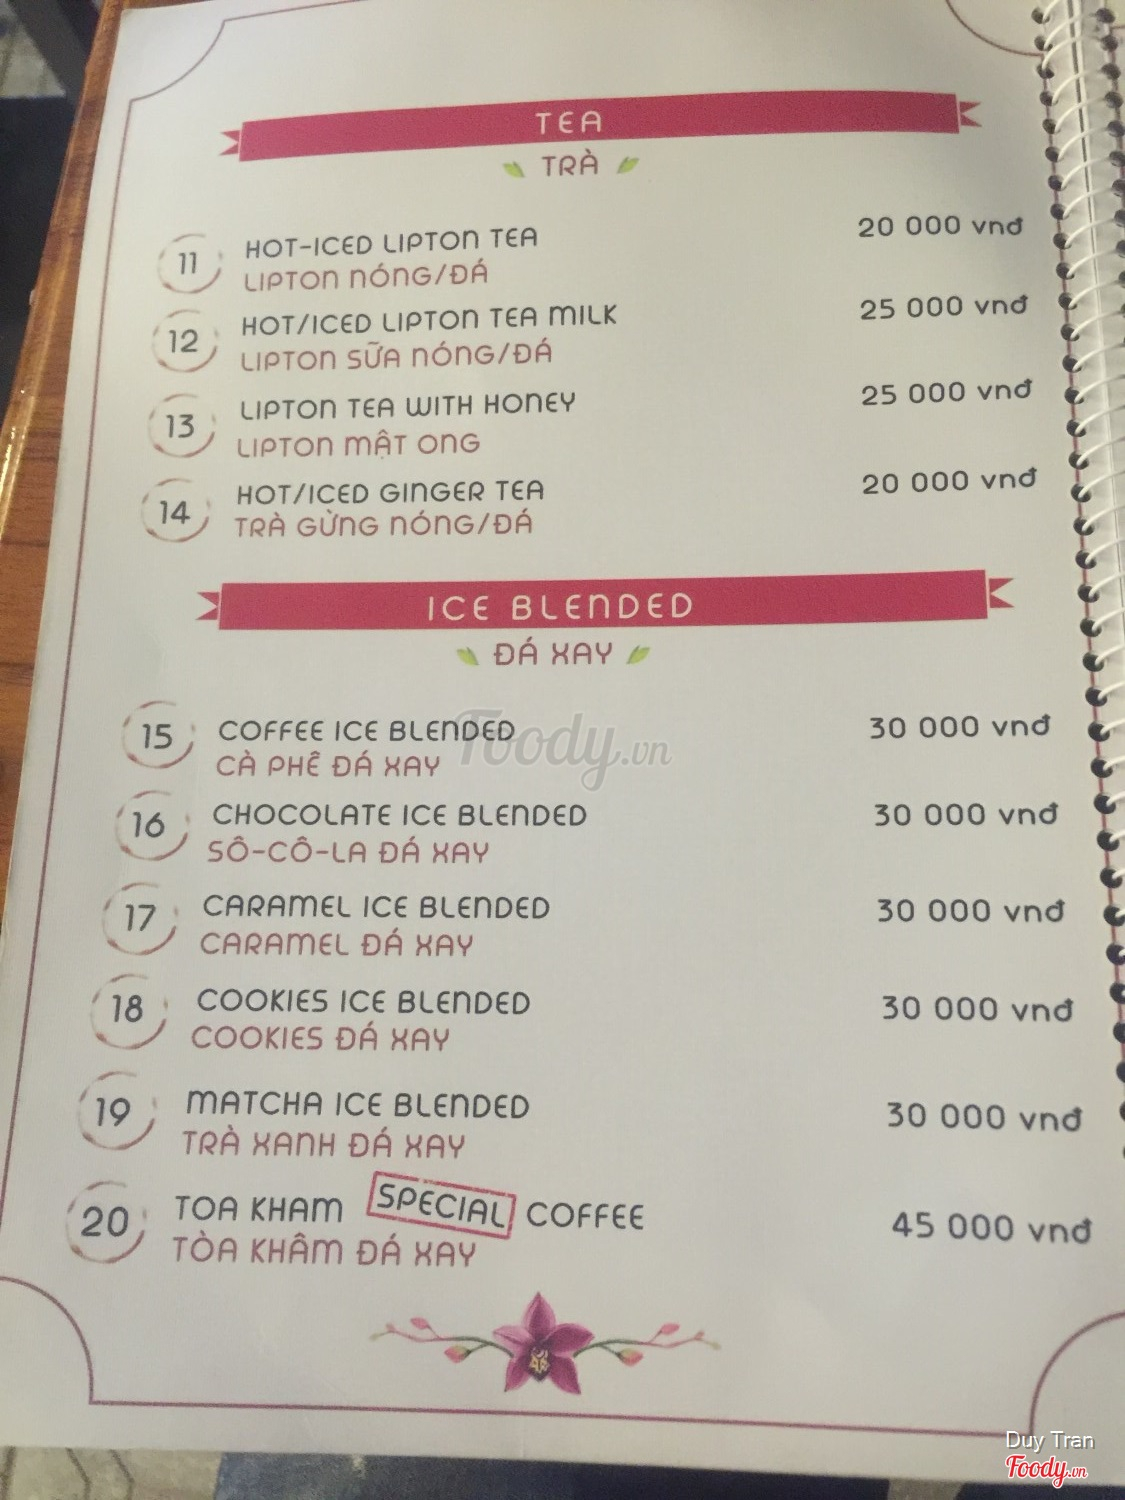 TEA
TRÀ
11 HOT-ICED LIPTON TEA 20 000 vnđ
LIPTON NÓNG/ĐÁ
12 HOT/ICED LIPTON TEA MILK 25 000 vnđ
LIPTON SỮA NÓNG/ĐÁ
13 LIPTON TEA WITH HONEY 25 000 vnđ
LIPTON MẬT ONG
14 HOT/ICED GINGER TEA 20 000 vnđ
TRÀ GỪNG NÓNG/ĐÁ
ICE BLENDED
ĐÁ XAY
15 COFFEE ICE BLENDED 30 000 vnđ
CÀ PHÊ ĐÁ XAY
Foody.vn
16 CHOCOLATE ICE BLENDED 30 000 vnđ
SÔ-CÔ-LA ĐÁ XAY
17 CARAMEL ICE BLENDED 30 000 vnđ
CARAMEL ĐÁ XAY
18 COOKIES ICE BLENDED 30 000 vnđ
COOKIES ĐÁ XAY
19 MATCHA ICE BLENDED 30 000 vnđ
TRÀ XANH ĐÁ XAY
20 TOA KHAM SPECIAL COFFEE 45 000 vnđ
TÒA KHÂM ĐÁ XAY
Duy Tran
Foody.vn